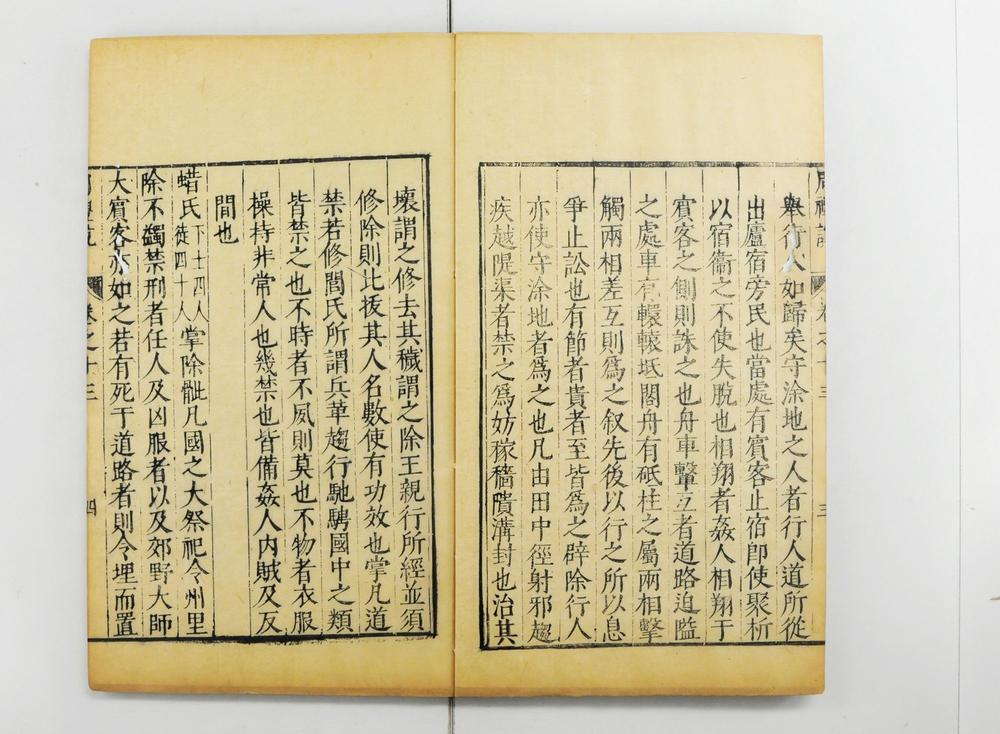 舉行人如歸矣守涂地之人者行人道所從
出廬宿旁民也當處有賓客止宿卽使聚柝
以宿衞之不使失脫也相翔者姦人相翔于
賓客之側則誅之也舟車轚互者道路迫隘
之處車有轘轅坻閣舟有砥柱之屬兩相擊
觸兩相差互則爲之叙先後以行之所以息
爭止訟也有節者貴者至皆爲之辟除行人
亦使守涂地者爲之也凡由田中徑射邪趨
疾越隄渠者禁之爲妨稼穡隤溝封也治其
壞謂之修去其穢謂之除王親行所經並須
修除則比挍其人名數使有功效也掌凡道
禁若修閭氏所謂兵革趨行馳騁國中之類
皆禁之也不時者不夙則莫也不物者衣服
操持非常人也幾禁也皆備姦人內賊及反
間也
蜡氏下士四人徒四十人掌除骴凡國之大祭祀令州里
除不蠲禁刑者任人及凶服者以及郊野大師
大賓客亦如之若有死于道路者則令埋而置
卷之十三
三
卷之十三
四